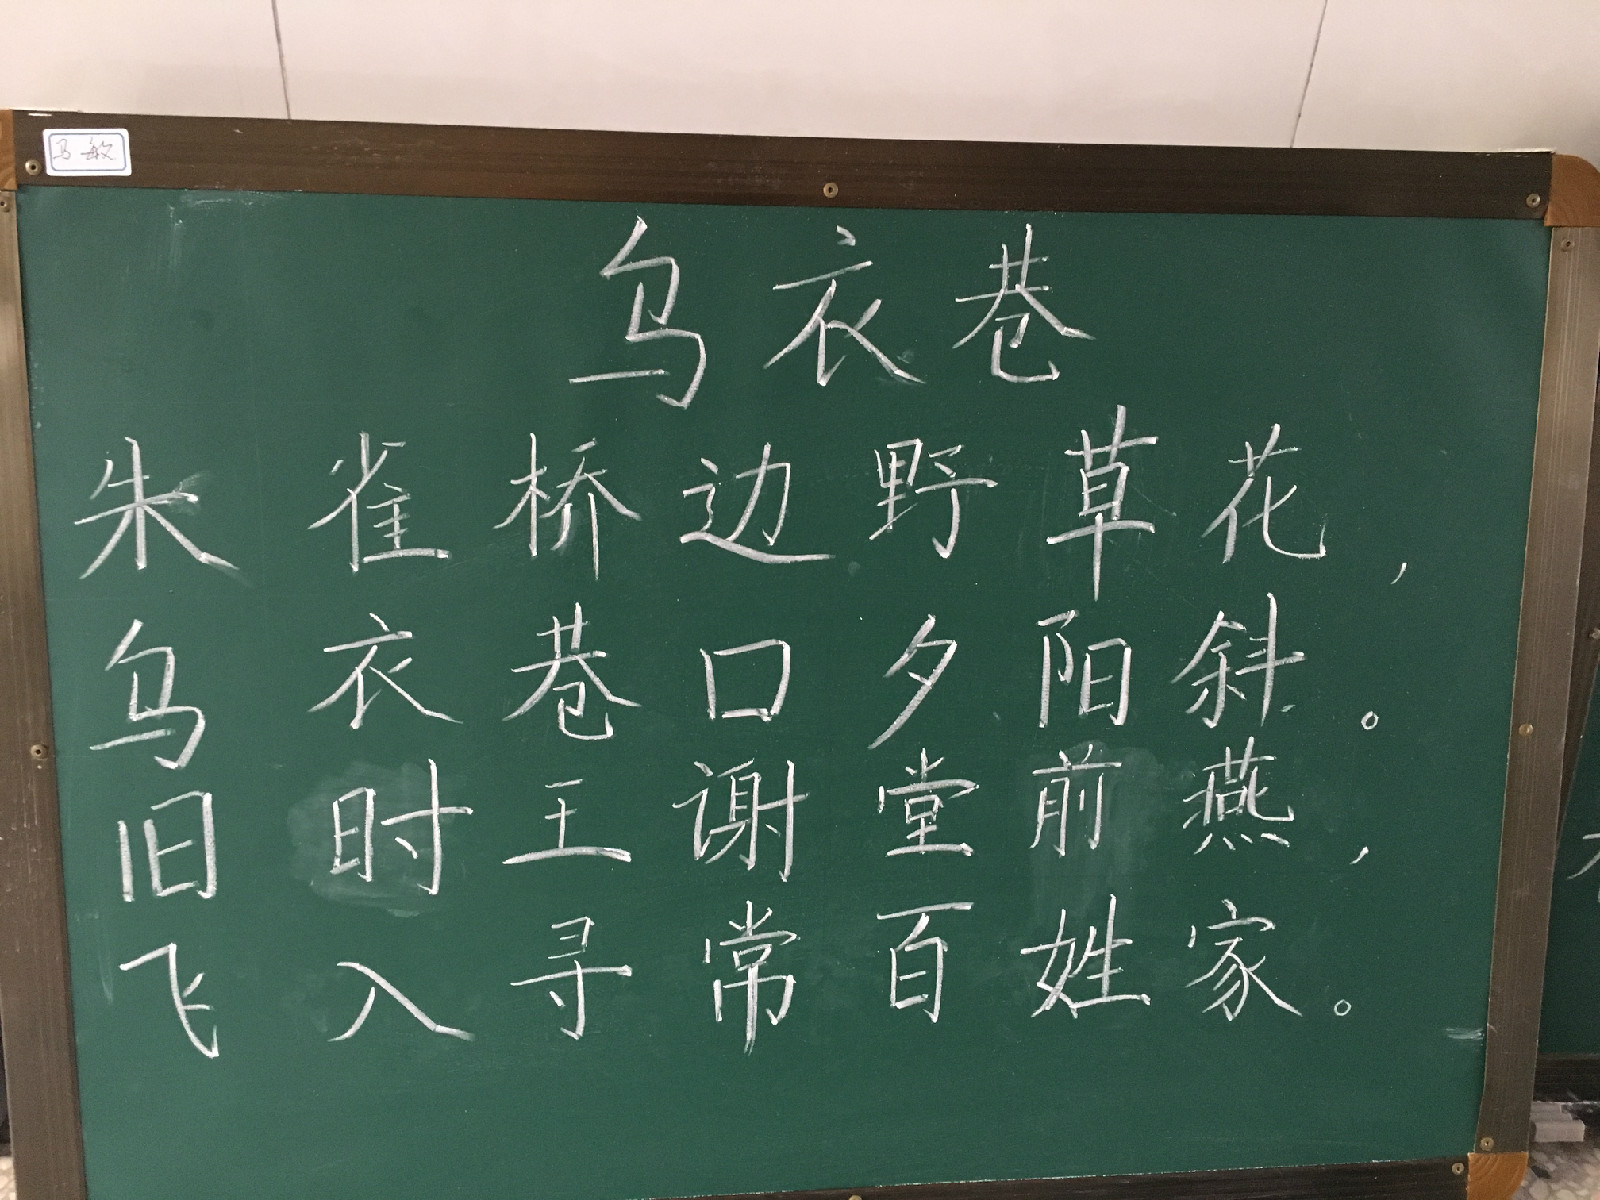 马敏
乌衣巷
朱雀桥边野草花，
乌衣巷口夕阳斜。
旧时王谢堂前燕，
飞入寻常百姓家。